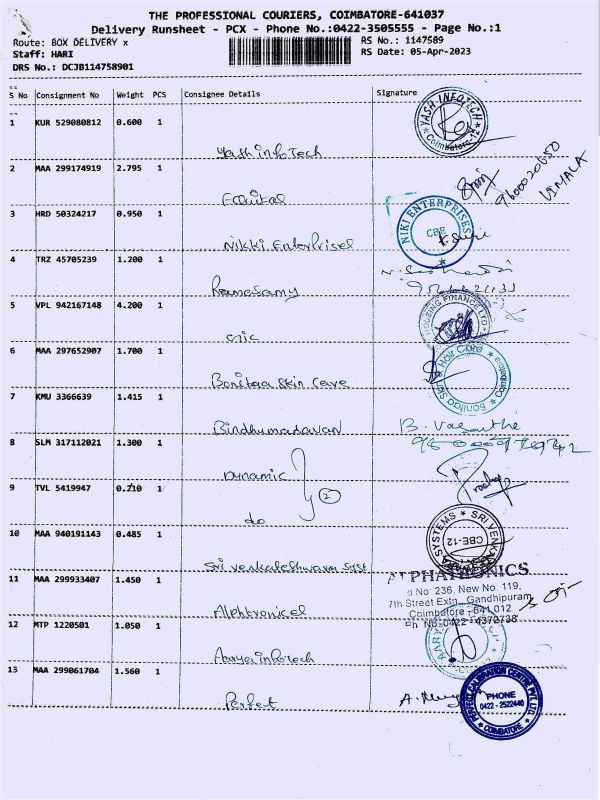 THE PROFESSIONAL COURIERS, COIMBATORE-641037
Delivery Runsheet - PCX - Phone No.:0422-3505555 - Page No.:1
Route: BOX DELIVERY x RS No.: 1147589
Staff: HARI RS Date: 05-Apr-2023
DRS No.: DCJB114758901
S No Consignment No Weight PCS Consignee Details Signature
1 KUR 529080812 0.600 1
YASH INFOTECH
Coimbatore-12
Yash infoTech
2 MAA 299174919 2.795 1
9600020650
VIMALA
Equital
3 HRD 50324217 0.950 1
NIKI ENTERPRISES
CBE
Nikki EnterPrisel
4 TRZ 45705239 1.200 1
Ramasamy
5 VPL 942167148 4.200 1
HOUSING FINANCE LTD
6 MAA 297652907 1.700 1
Bonitaa Skin & Hair Care
Coimbatore
Bonitaa Skin Cave
7 KMU 3366639 1.415 1
Bindhumadavan B. Vasanthi
8 SLM 317112021 1.300 1
Dynamic
2
9 TVL 5419947 0.210 1
do
10 MAA 940191143 0.485 1
SYSTEMS ★ SRI VENK
CBE-12
Sri venkateshwara syst
11 MAA 299933407 1.450 1
ALPHATRONICS
No 236, New No. 119,
7th Street Extn., Gandhipuram
Coimbatore - 641 012
Ph No 0422-4372738
Alphtronicel
12 MTP 1220501 1.050 1
Aarya infoTech
13 MAA 299061704 1.560 1
PHONE
0422 - 2522440
COIMBATORE
Perfet